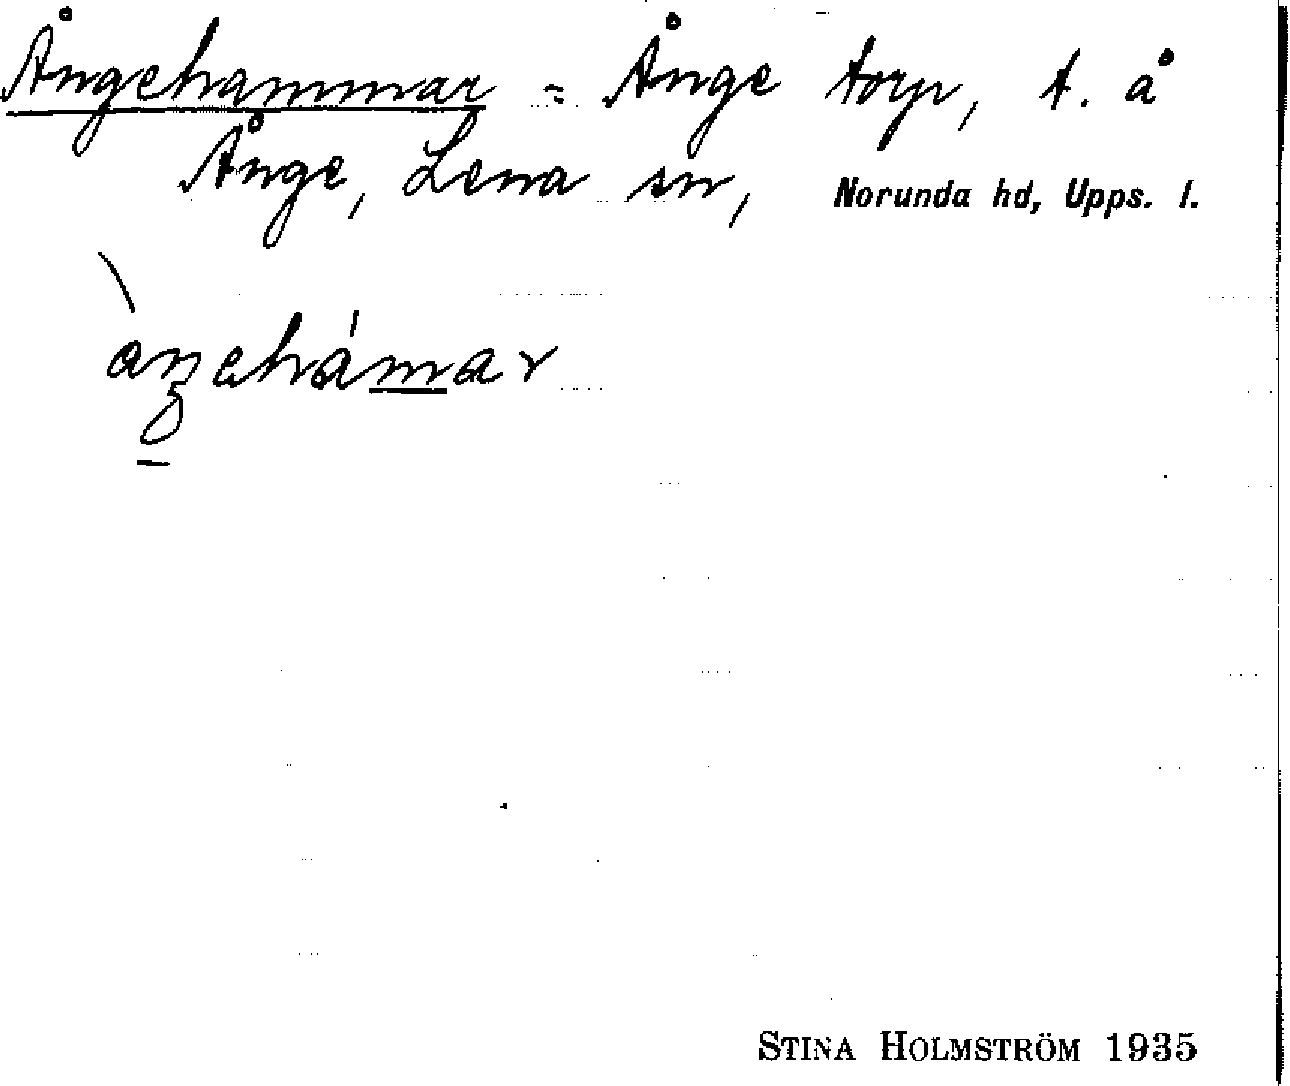 Ångehammar = Ånge torp, t. å
Ånge, Lena sn, Norunda hd, Upps. l.
STINA HOLMSTRÖM 1935